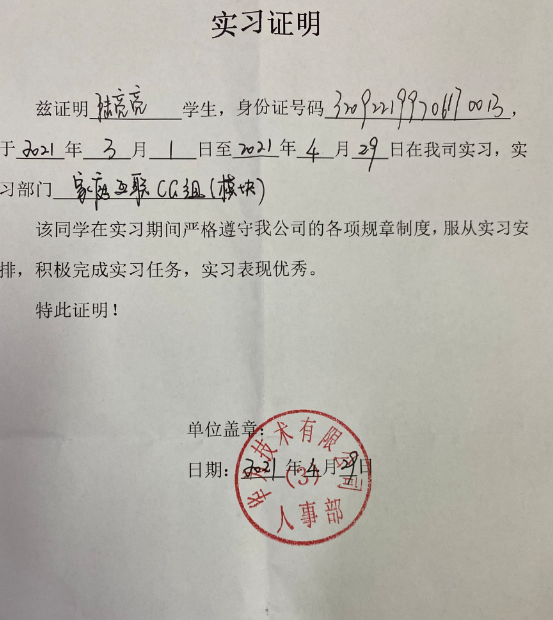 实习证明
兹证明 陆亮亮 学生，身份证号码 320922199706170013，
于 2021 年 3 月 1 日至 2021 年 4 月 29 日在我司实习，实
习部门 家庭互联CG组(模块)
该同学在实习期间严格遵守我公司的各项规章制度，服从实习安
排，积极完成实习任务，实习表现优秀。
特此证明！
单位盖章：
日期：2021 年 4 月 29 日
技术有限公司
(3)
人事部